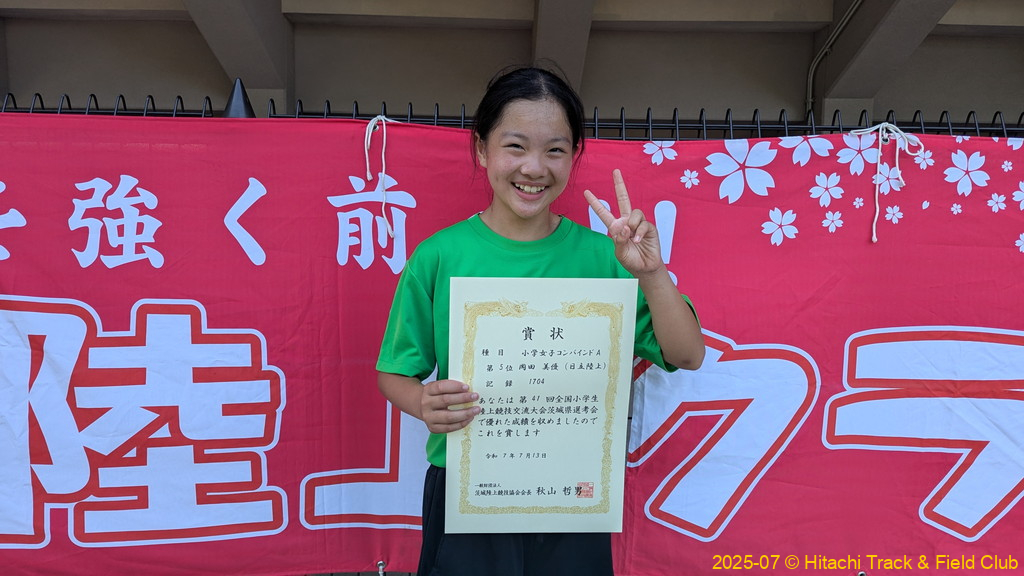 強く 前
陸上クラ
賞状
種目 小学女子コンバインドA
第5位 岡田 美優 (日立陸上)
記録 1704
あなたは第41回全国小学生
陸上競技交流大会茨城県選考会
で優れた成績を収めましたので
これを賞します
令和 7年 7月13日
一般財団法人
茨城陸上競技協会会長 秋山 哲男
2025-07 © Hitachi Track & Field Club